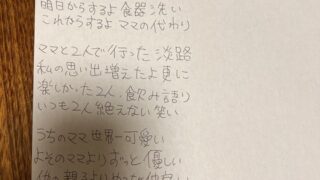 明日からするよ食器洗い
これからするよママの代わり
ママと2人で行った淡路
私の思い出増えたよ更に
楽しかった2人飲み語り
いつも2人絶えない笑い
うちのママ世界一可愛い
よそのママよりずっと優しい